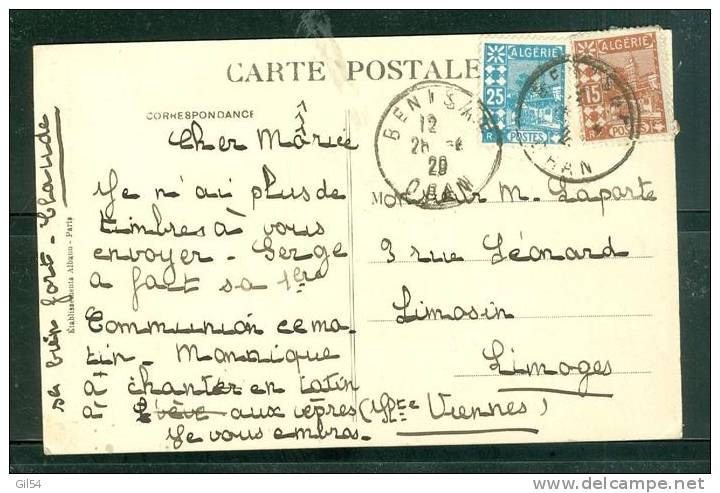 CARTE POSTALE
CORRESPONDANCE
ALGÉRIE
25
POSTES
ALGÉRIE
15
POSTES
BENI SAF
12
28
29
ORAN
ORAN
Cher Marie
Je n'ai plus de
timbres à vous
envoyer - Serge
a fait sa 1ère
Communion ce ma-
tin. Monique
a chanter en latin
à aux vêpres
Je vous embras-
se bien fort - Claude
Monsieur M. Laporte
3 rue Léonard
Limosin
Limoges
(Hte Viennes)
Établissements Albano - Paris
Gil54
delcampe.net